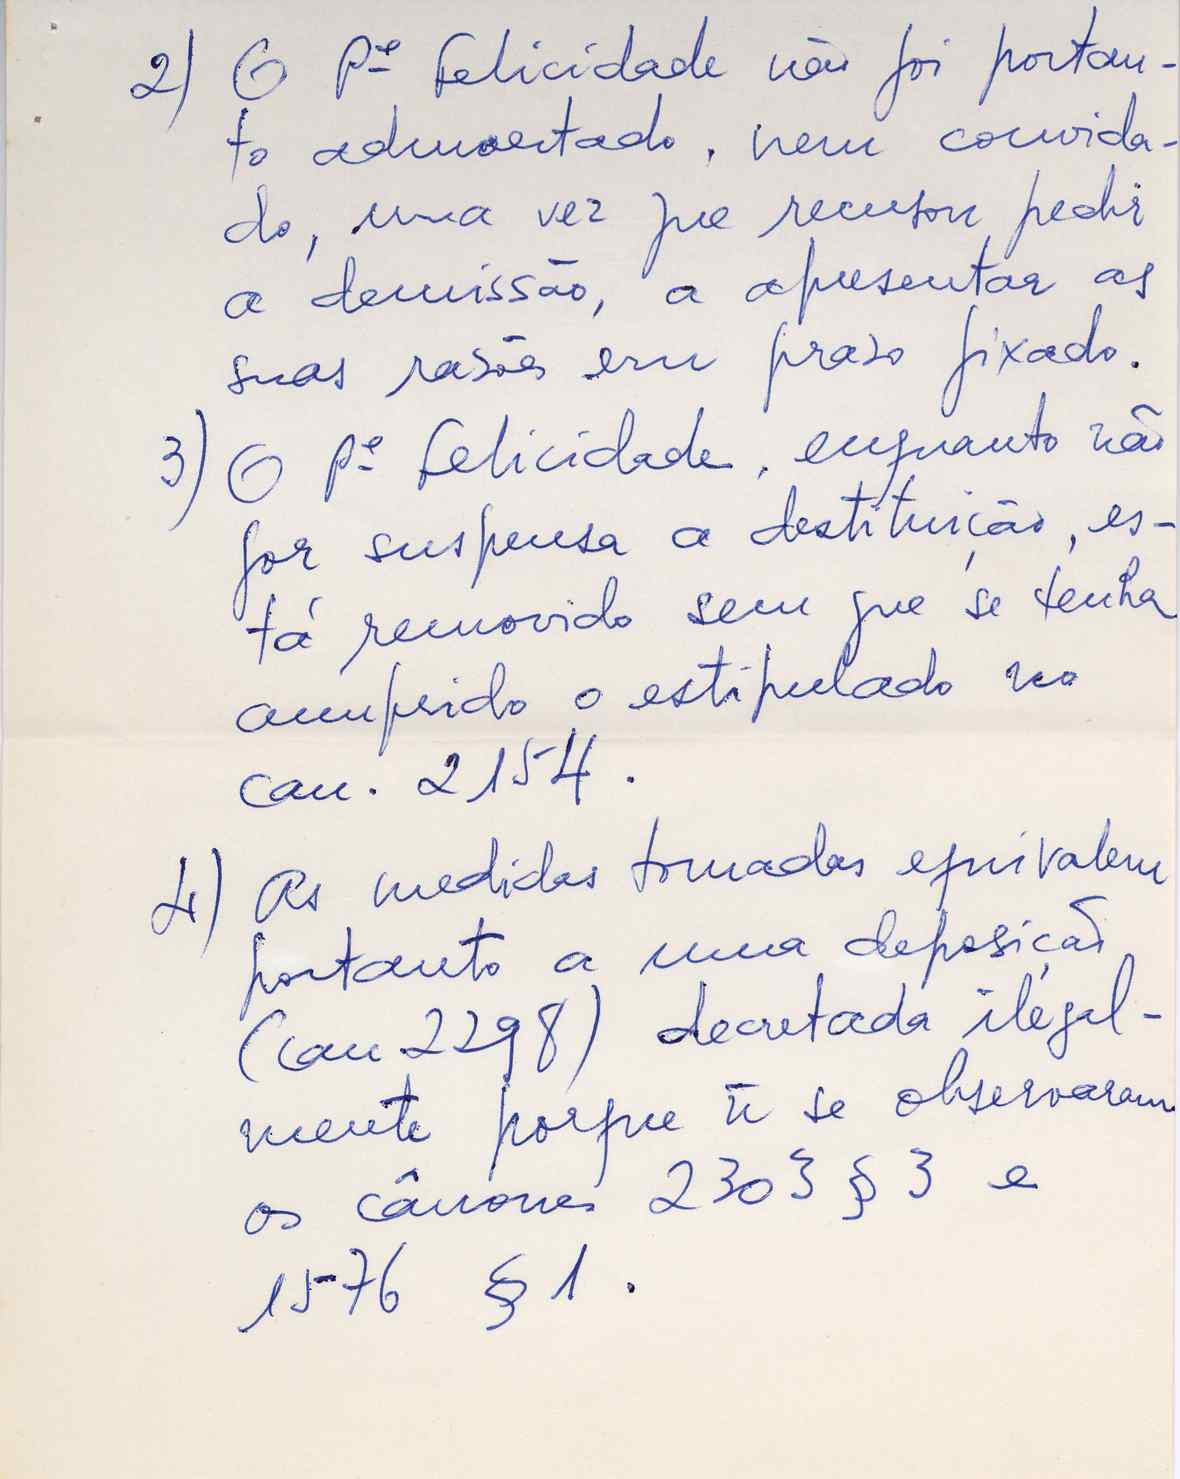 2) O Pe Felicidade não foi portan-
to admoestado, nem convida-
do, uma vez que recusou pedir
a demissão, a apresentar as
suas razões em prazo fixado.
3) O Pe Felicidade, enquanto não
for suspensa a destituição, es-
tá removido sem que se tenha
cumprido o estipulado no
can. 2154.
4) As medidas tomadas equivalem
portanto a uma deposição
(can 2298) decretada ilegal-
mente porque ñ se observaram
os cânones 2303 § 3 e
1576 § 1.